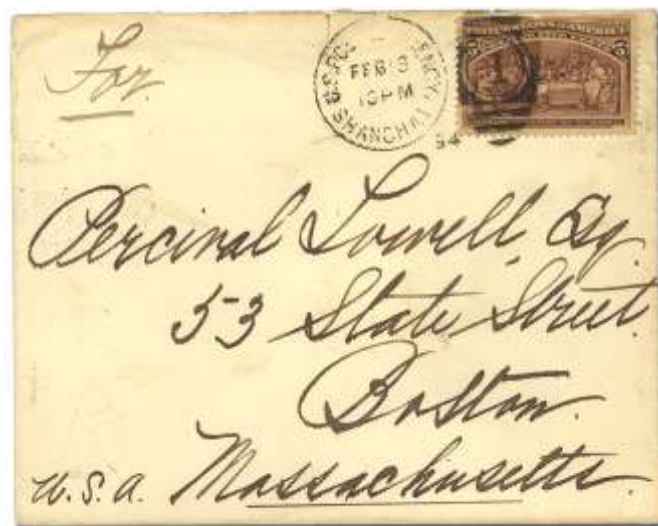 For
FEB 3
PM
SHANGHAI
94
Percival Lowell, Esq.
53 State Street.
Boston.
U.S.A. Massachusetts.